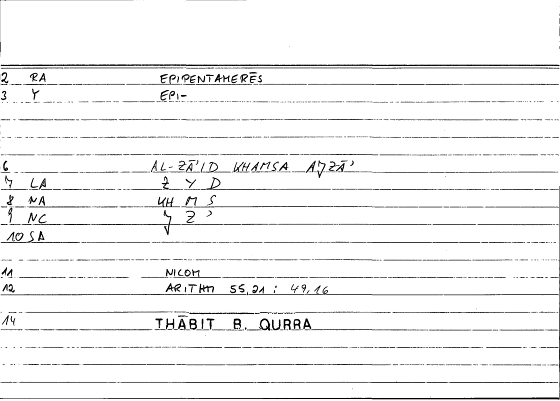 2 RA EPIPENTAMERĒS
3 Y EPI-
6 AL-ZĀ'ID KHAMSA AJZĀ'
7 LA Z Y D
8 NA KH M S
9 NC J Z '
10 SA
11 NICOM
12 ARITHM 55,21 : 49,16
14 THĀBIT B. QURRA